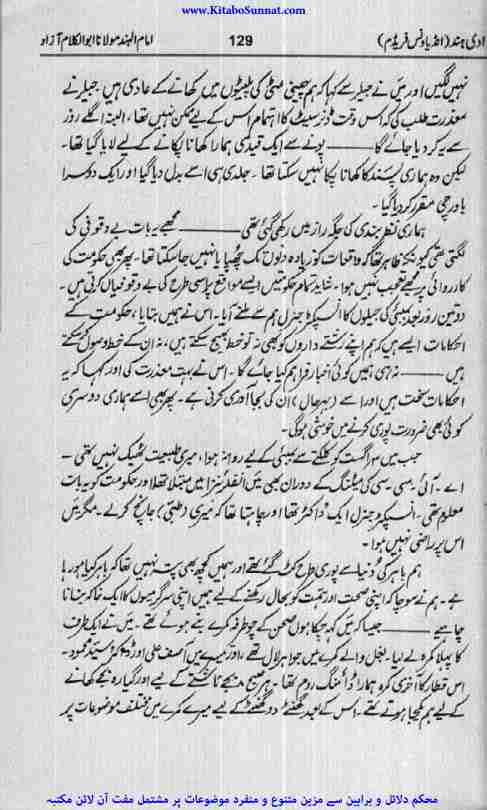 www.KitaboSunnat.com
امام الہند مولانا ابوالکلام آزاد
129
ادی ہند (انڈیا ونس فریڈم)
نہیں لگیں اور میں نے جیلر سے کہا کہ ہم چینی مٹی کی پلیٹوں میں کھانے کے عادی ہیں جیلر نے
معذرت طلب کی کہ اس وقت ڈنر سیٹ کا اہتمام اس کے لیے ممکن نہیں تھا، البتہ اگلے روز
سے یہ کر دیا جائے گا ——— پونے سے ایک قیدی ہمارا کھانا پکانے کے لیے لایا گیا تھا۔
لیکن وہ ہماری پسند کا کھانا پکا نہیں سکتا تھا۔ جلد ہی اسے بدل دیا گیا اور ایک دوسرا
باورچی مقرر کر دیا گیا۔
ہماری نظر بندی کی جگہ راز میں رکھی گئی تھی ——— مجھے یہ بات بے وقوفی کی
لگتی تھی کیونکہ ظاہر تھا کہ واقعات کو زیادہ دنوں تک چھپایا نہیں جا سکتا تھا۔ پھر بھی حکومت کی
کارروائی پر مجھے تعجب نہیں ہوا۔ شاید تمام حکومتیں ایسے مواقع پر اسی طرح کی بے وقوفیاں کرتی ہیں۔
دو تین روز بعد بمبئی کی جیلوں کا انسپکٹر جنرل ہم سے ملنے آیا۔ اس نے ہمیں بتایا، حکومت کے
احکامات ایسے ہیں کہ ہم اپنے رشتے داروں کو بھی نہ تو خط بھیج سکتے ہیں، نہ ان کے خط وصول کر سکتے
ہیں ——— نہ ہی ہمیں کوئی اخبار فراہم کیا جائے گا۔ اس نے بہت معذرت کی اور کہا کہ یہ
احکامات سخت ہیں اور اسے (بہرحال) ان کی بجا آوری کرنی ہے۔ پھر بھی اسے ہماری دوسری
کوئی بھی ضرورت پوری کرنے میں خوشی ہوگی۔
جب میں ۳ اگست کو کلکتے سے بمبئی کے لیے روانہ ہوا، میری طبیعت ٹھیک نہیں تھی۔
اے۔ آئی۔ سی۔ سی کی میٹنگ کے دوران بھی میں انفلوئنزا میں مبتلا تھا اور حکومت کو یہ بات
معلوم تھی۔ انسپکٹر جنرل ایک ڈاکٹر تھا اور چاہتا تھا کہ میری (طبی) جانچ کرے۔ مگر میں
اس پر راضی نہیں ہوا۔
ہم باہر کی دنیا سے پوری طرح کٹ گئے تھے اور ہمیں کچھ بھی پتہ نہیں تھا کہ باہر کیا ہو رہا
ہے۔ ہم نے سوچا کہ اپنی صحت اور ہمت کو بحال رکھنے کے لیے ہمیں اپنی سرگرمیوں کا ایک خاکہ بنانا
چاہیے ——— جیسا کہ میں کہہ چکا ہوں صحن کے چو طرفہ کمرے بنے ہوئے تھے۔ میں نے ایک طرف
کا پہلا کمرہ لے لیا۔ بغل والے کمرے میں جواہر لال تھے، اور تیسرے میں آصف علی اور ڈاکٹر سید محمود۔
اس قطار کا آخری کمرہ ہمارا ڈائننگ روم تھا۔ ہر صبح بجے ناشتے کے لیے اور گیارہ بجے کھانے
کے لیے ہم یکجا ہوتے تھے۔ اس کے بعد گھنٹے دو گھنٹے کے لیے میرے کمرے میں مختلف موضوعات پر
محکم دلائل و براہین سے مزین متنوع و منفرد موضوعات پر مشتمل مفت آن لائن مکتبہ